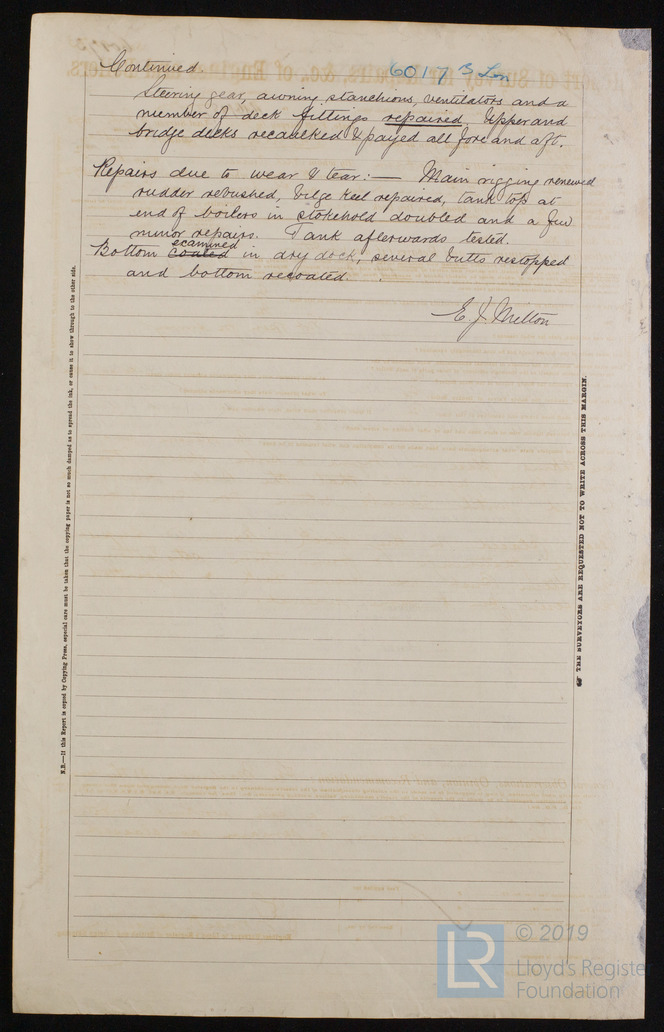 Continued
60173 Lon
Steering gear, awning stanchions, ventilators and a
number of deck fittings repaired. Upper and
bridge decks recaulked & payed all fore and aft.
Repairs due to wear & tear:— Main rigging renewed
rudder rebushed, bilge keel repaired, tank top at
end of boilers in stokehold doubled and a few
minor repairs. Tank afterwards tested.
examined
Bottom coated in dry dock, several butts restopped
and bottom recoated.
E. J. Milton
N.B.—If this Report is copied by Copying Press, especial care must be taken that the copying paper is not so much damped as to spread the ink, or cause it to show through to the other side.
THE SURVEYORS ARE REQUESTED NOT TO WRITE ACROSS THIS MARGIN.
LR
© 2019
Lloyd's Register
Foundation